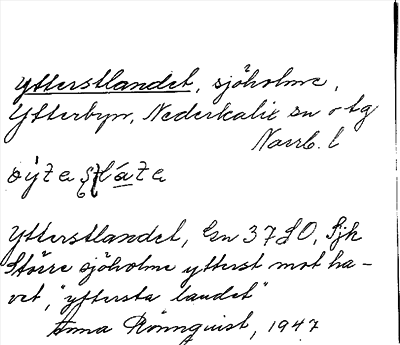 Ytterstlandet, sjöholme,
Ytterbyn, Nederkalix sn o tg
Norrb. l
Ytterstlandet, Gn 37 SO, Sjk
Större sjöholme ytterst mot ha-
vet, "yttersta landet"
Anna Rönnquist, 1947